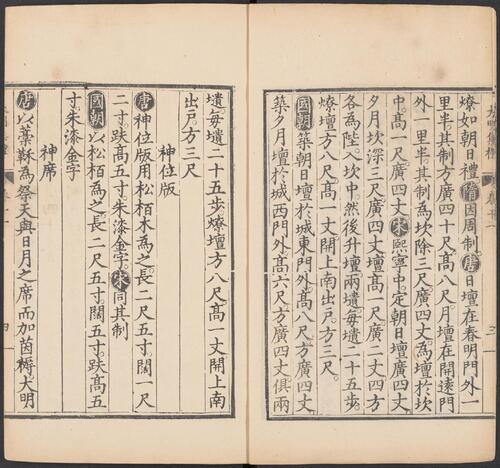 燎如朝日禮隋因周制唐日壇在春明門外一
里半其制方廣四十尺高八尺月壇在開遠門
外一里半其制為坎深三尺廣四丈為壇於坎
中高一尺廣四丈宋熙寧中定朝日壇廣四丈
夕月坎深三尺廣四丈壇高一尺廣二丈四方
各為陛入坎中然後升壇兩壝每壝二十五步
燎壇方八尺高一丈開上南出戶方三尺
國朝築朝日壇於城東門外高八尺方廣四丈
築夕月壇於城西門外高六尺方廣四丈俱兩
壝每壝二十五步燎壇方八尺高一丈開上南
出戶方三尺
神位版
唐神位版用松栢木為之長二尺五寸闊一尺
二寸趺高五寸朱漆金字宋同其制
國朝以松栢為之長二尺五寸闊五寸趺高五
寸朱漆金字
神席
唐以藁秣為祭天與日月之席而加茵褥大明